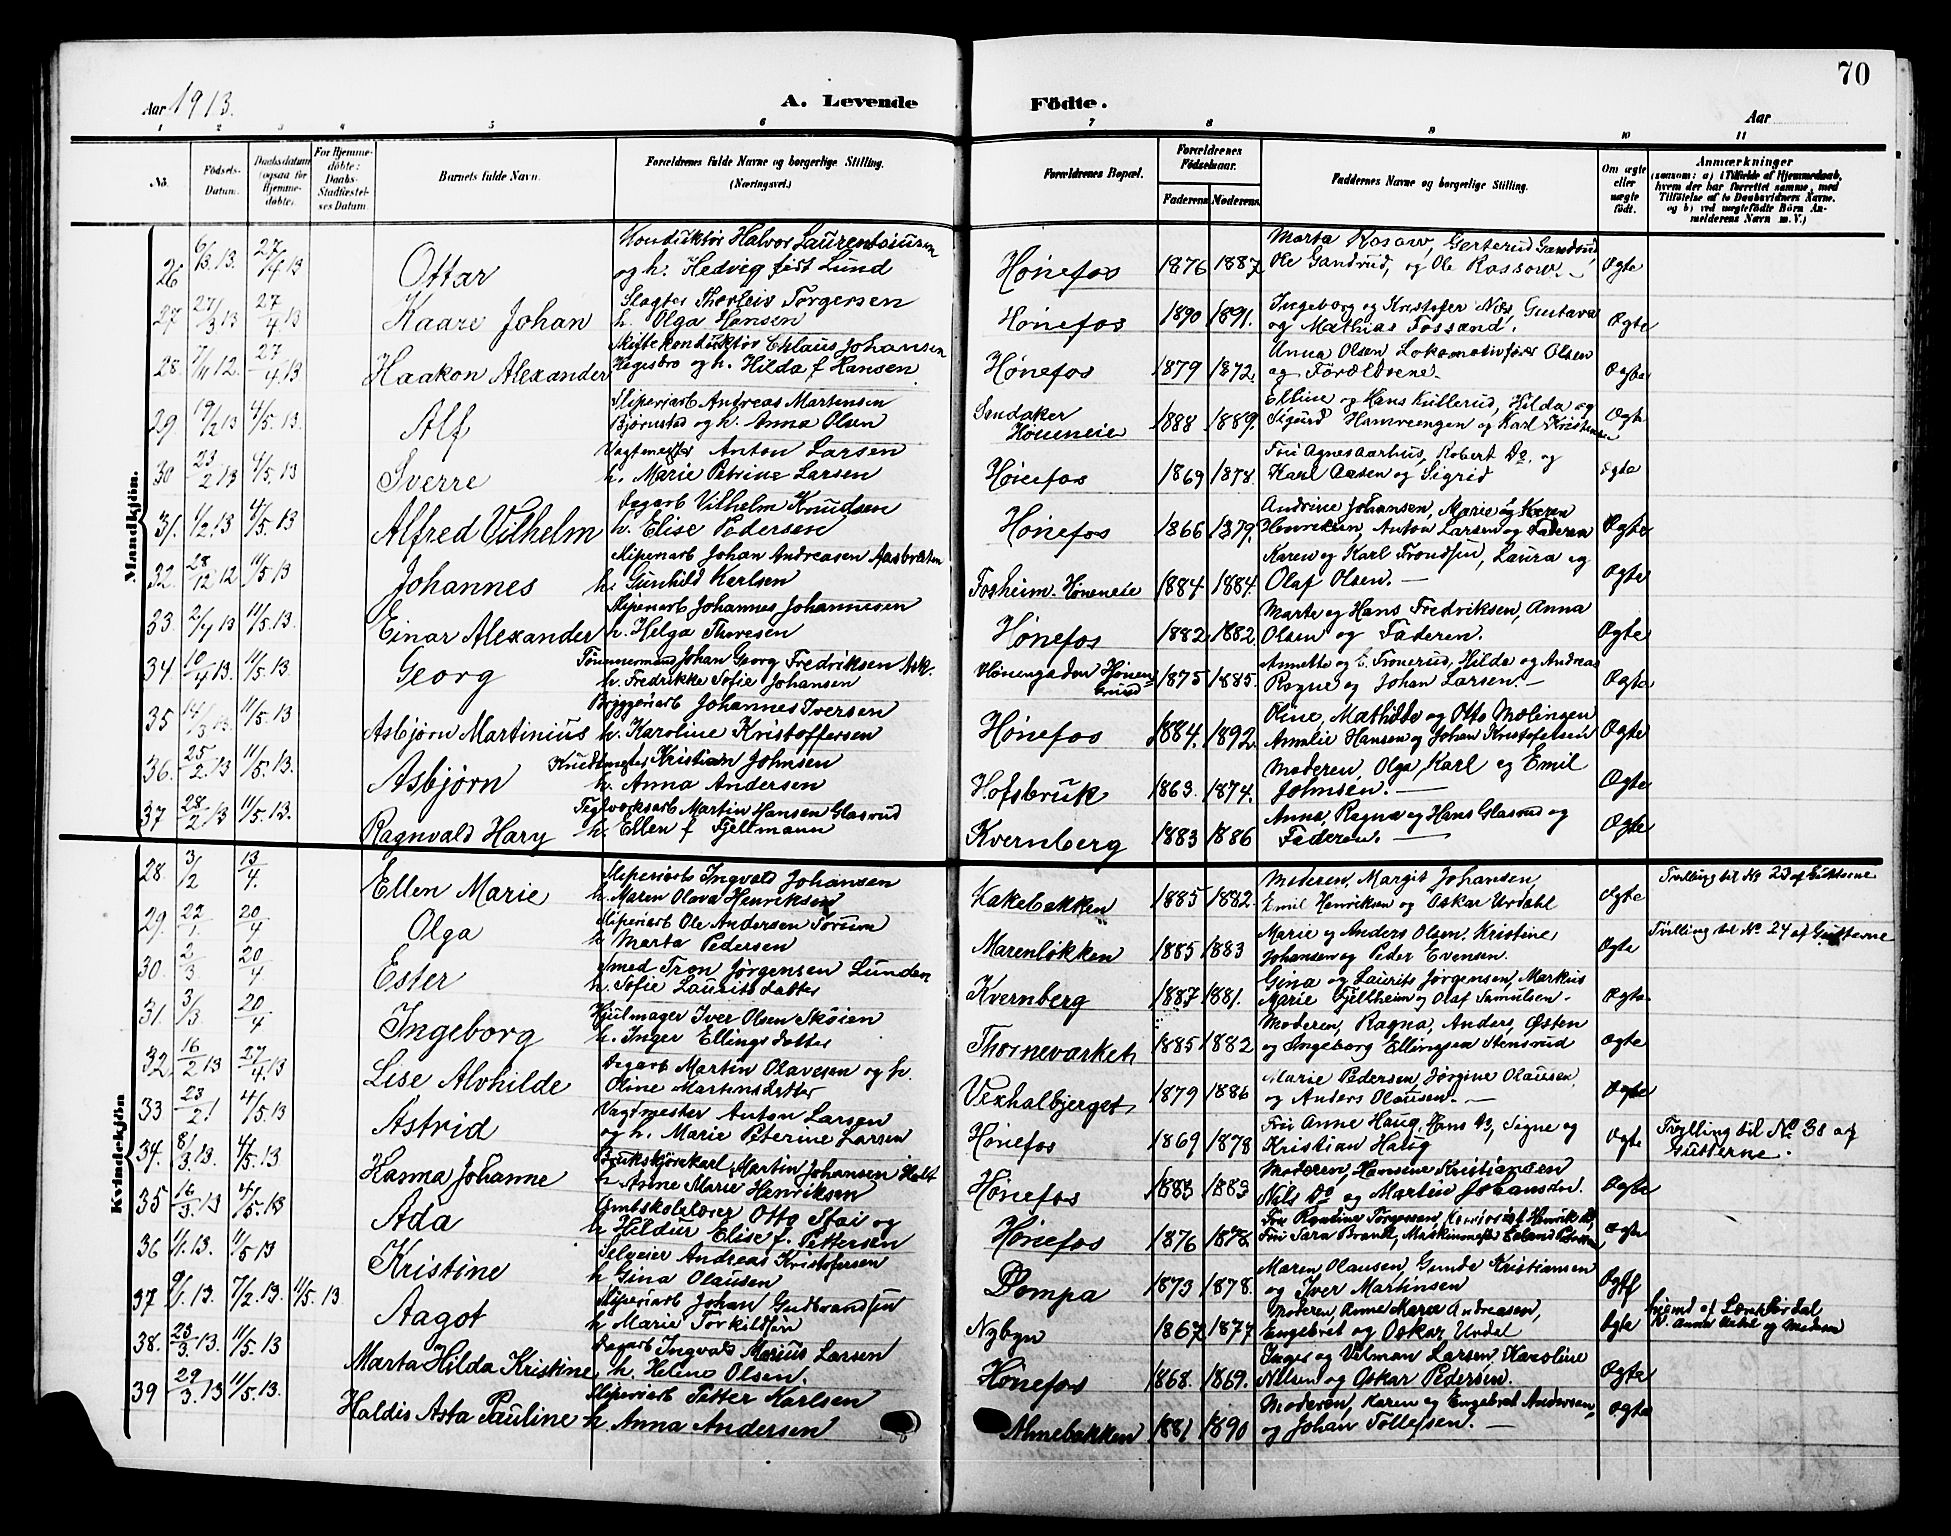 70
Aar 1913.
A. Levende Födte.
Aar
1 2 3 4 5 6 7 8 9 10 11
No. Födsels-Datum. Daabsdatum (ogsaa for Hjemmedöbte). For Hjemmedöbte: Daabs-Stadfæstelses Datum. Barnets fulde Navn. Forældrenes fulde Navne og borgerlige Stilling. (Næringsvei.) Forældrenes Bopæl. Forældrenes Födselsaar. Faderens Moderens. Faddernes Navne og borgerlige Stilling. Om ægte eller uægte födt. Anmærkninger (saasom: a) i Tilfælde af Hjemmedaab, hvem der har forrettet samme, med Tilföielse af to Daabsvidners Navne. og b) ved uægtefödte Börn Anmelderens Navn m. V.)
Mandkjön.
26 6/3.13. 27/4 13 Ottar Konduktör Halvor Laurentiussen Hönefos 1876 1887 Marta Rosow, Gerterud Gandrud
og h. Hedvig födt Lund Ole Gandrud, og Ole Rossow. — Ægte
27 27/3 13 27/4 13 Kaare Johan Slagter Thorleiv Torgersen Hönefos 1890 1891. Ingeborg og Kristofer Næs, Gustava
h. Olga Hansen og Mathias Fossand. Ægte
28. 7/11 12. 27/4.13 Haakon Alexander Claus Johansen Hönefos 1879 1872. Anna Olsen Lokomotivförer Olsen
og h. Hilda f Hansen og Forældrene. Ægte
29. 19/2 13 4/5.13. Alf Sliperiarb Andreas Martensen Hönemeie 1888 1889. Elline og Hans Kullerud, Hilda og
Björnstad og h. Anna Olsen Sigurd Hamrengen og Karl Kristensen Ægte
30 23/2 13 4/5.13 Sverre Vagtmester Anton Larsen Hönefos 1869 1878. Fru Agnes Aarhus, Robert Do. og
h. Marie Petrine Larsen Karl Aasen og Sigrid Ægte
31. 1/2.13 4/5.13 Alfred Vilhelm Dagarb Vilhelm Knudsen Hönefos 1866 1879. Andrine Johansen, Marie og Karen
h. Elise Pedersen Henriksen, Anton Larsen og Faderen Ægte
32. 28/12 12 11/5 13 Johannes Slipenarb Johan Andreasen Aasbråten Fosheim. Hönemeie 1884 1884. Karen og Karl Trondsen, Laura og
h. Gunhild Karlsen Olaf Olsen. — Ægte
33. 2/4 13 11/5.13. Einar Alexander Slipenarb Johannes Johannesen Hönefos 1882 1882. Marte og Hans Fredriksen, Anna
h. Helga Thoresen Olsen og Faderen. Ægte
34. 10/4 13. 11/5.13 Georg Tömmermand Johan Georg Fredriksen Ask. 1875 1885. Annette og C. Tronerud, Hilda og Andreas
h. Fredrikke Sofie Johansen Ragne og Johan Larsen. — Ægte
35 14/3 13. 11/5.13 Asbjörn Martinius Bryggeriarb Johannes Iversen Hönefos 1884. 1892. Oline, Mathilde og Otto Mælingen
h. Karoline Kristoffersen Amalie Hansen og Johan Kristofersen Ægte
36. 25/2.13 11/5.13. Asbjörn Kristian Johnsen Hofsbruk 1863. 1874. Moderen, Olga, Karl og Emil
h. Anna Andersen Johnsen. — Ægte
37 28/2 13 11/5.13. Ragnvald Hary Teglverksarb Martin Hansen Glasrud Kvernberg 1883 1886 Anna, Ragna og Hans Glasrud og
h. Ellen f Fjellmann Faderen. — Ægte
Kvindekjön
28. 3/2 13/4. Ellen Marie Sliperiarb Ingvald Johansen Kakebakken 1885 1882. Moderen, Margit Johansen, Tvilling til No 23 af Gutterne
h. Maren Olava Henriksen Emil Henriksen og Oskar Urdahl Ægte
29. 22/1 20/4 Olga Sliperiarb Ole Andersen Sorum Marenlökken 1885 1883 Marie og Anders Olsen, Kristine Tvilling til No. 24 af Gutterne
h Marta Pedersen Johansen og Peder Evensen. Ægte
30. 2/3 20/4 Ester Smed Tron Jörgensen Lunden Kvernberg 1887 1881. Gina og Laurits Jörgensen, Markus
h. Sofie Lauritsdatter Marie Fjellheim og Olaf Samulsen. Ægte
31. 3/3 20/4 Ingeborg Hjulmager Iver Olsen Sköien Thornevarket 1885 1882 Moderen, Ragna, Anders, Østen
h. Inger Ellingsdatter og Ingeborg Ellingsen Stensrud Ægte
32 16/2 13 27/4.13 Lise Alvhilde Dagarb Martin Olavesen og h. Vexhalbjerget 1879 1886 Marie Pedersen, Jörgine Olausen,
Oline Martinsdatter og Anders Olausen. — Ægte
33 23/2 4/5 13 Astrid Vagtmester Anton Larsen Hönefos 1869 1878 Fru Anne Haug, Hans Do, Signe og Tvilling til No 30 af
og h. Marie Peterine Larsen Kristian Haug Ægte Gutterne.
34. 8/3.13. 4/5.13 Hanna Johanne Brukskjörekarl Martin Johansen Holt Hönefos 1883 1883 Moderen, Hansine Kristiansen
h. Anne Marie Henriksen Nils Do og Martin Johansen. Ægte
35 16/3.13 4/5.13 Ada Amtskolelærer Otto Sfai og Hönefos 1876 1878 Fru Ragline Torgersen,
h Hildur Elise f. Pettersen Fru Sara Brandt, Ægte
36 1/1.13. 11/5 13 Kristine Selveier Andreas Kristofersen Pompa 1873 1878. Maren Olausen, Gunda Kristiansen
h Gina Olausen og Iver Martinsen Ægte
37 9/1.13. 7/2.13. 11/5.13 Aagot Sliperiarb Johan Gudbrandsen Nybyn 1867 1877 Moderen, Anne Marie Andreasen,
h Marie Torkildsen Engebret og Oskar Urdal Ægte
38. 23/3.13 11/5.13 Marta Hilda Kristine Dagarb Ingvald Marius Larsen Hönefos 1868. 1869. Inger og Vilman Larsen, Karoline
h. Helene Olsen. Nilsen og Oskar Pedersen. Ægte
39 29/3.13 11/5.13. Haldis Asta Pauline Sliperiarb Petter Karlsen Almebakken 1881 1890 Moderen, Karen og Engebret Andersen,
h Anna Andersen og Johan Tollefsen. — Ægte